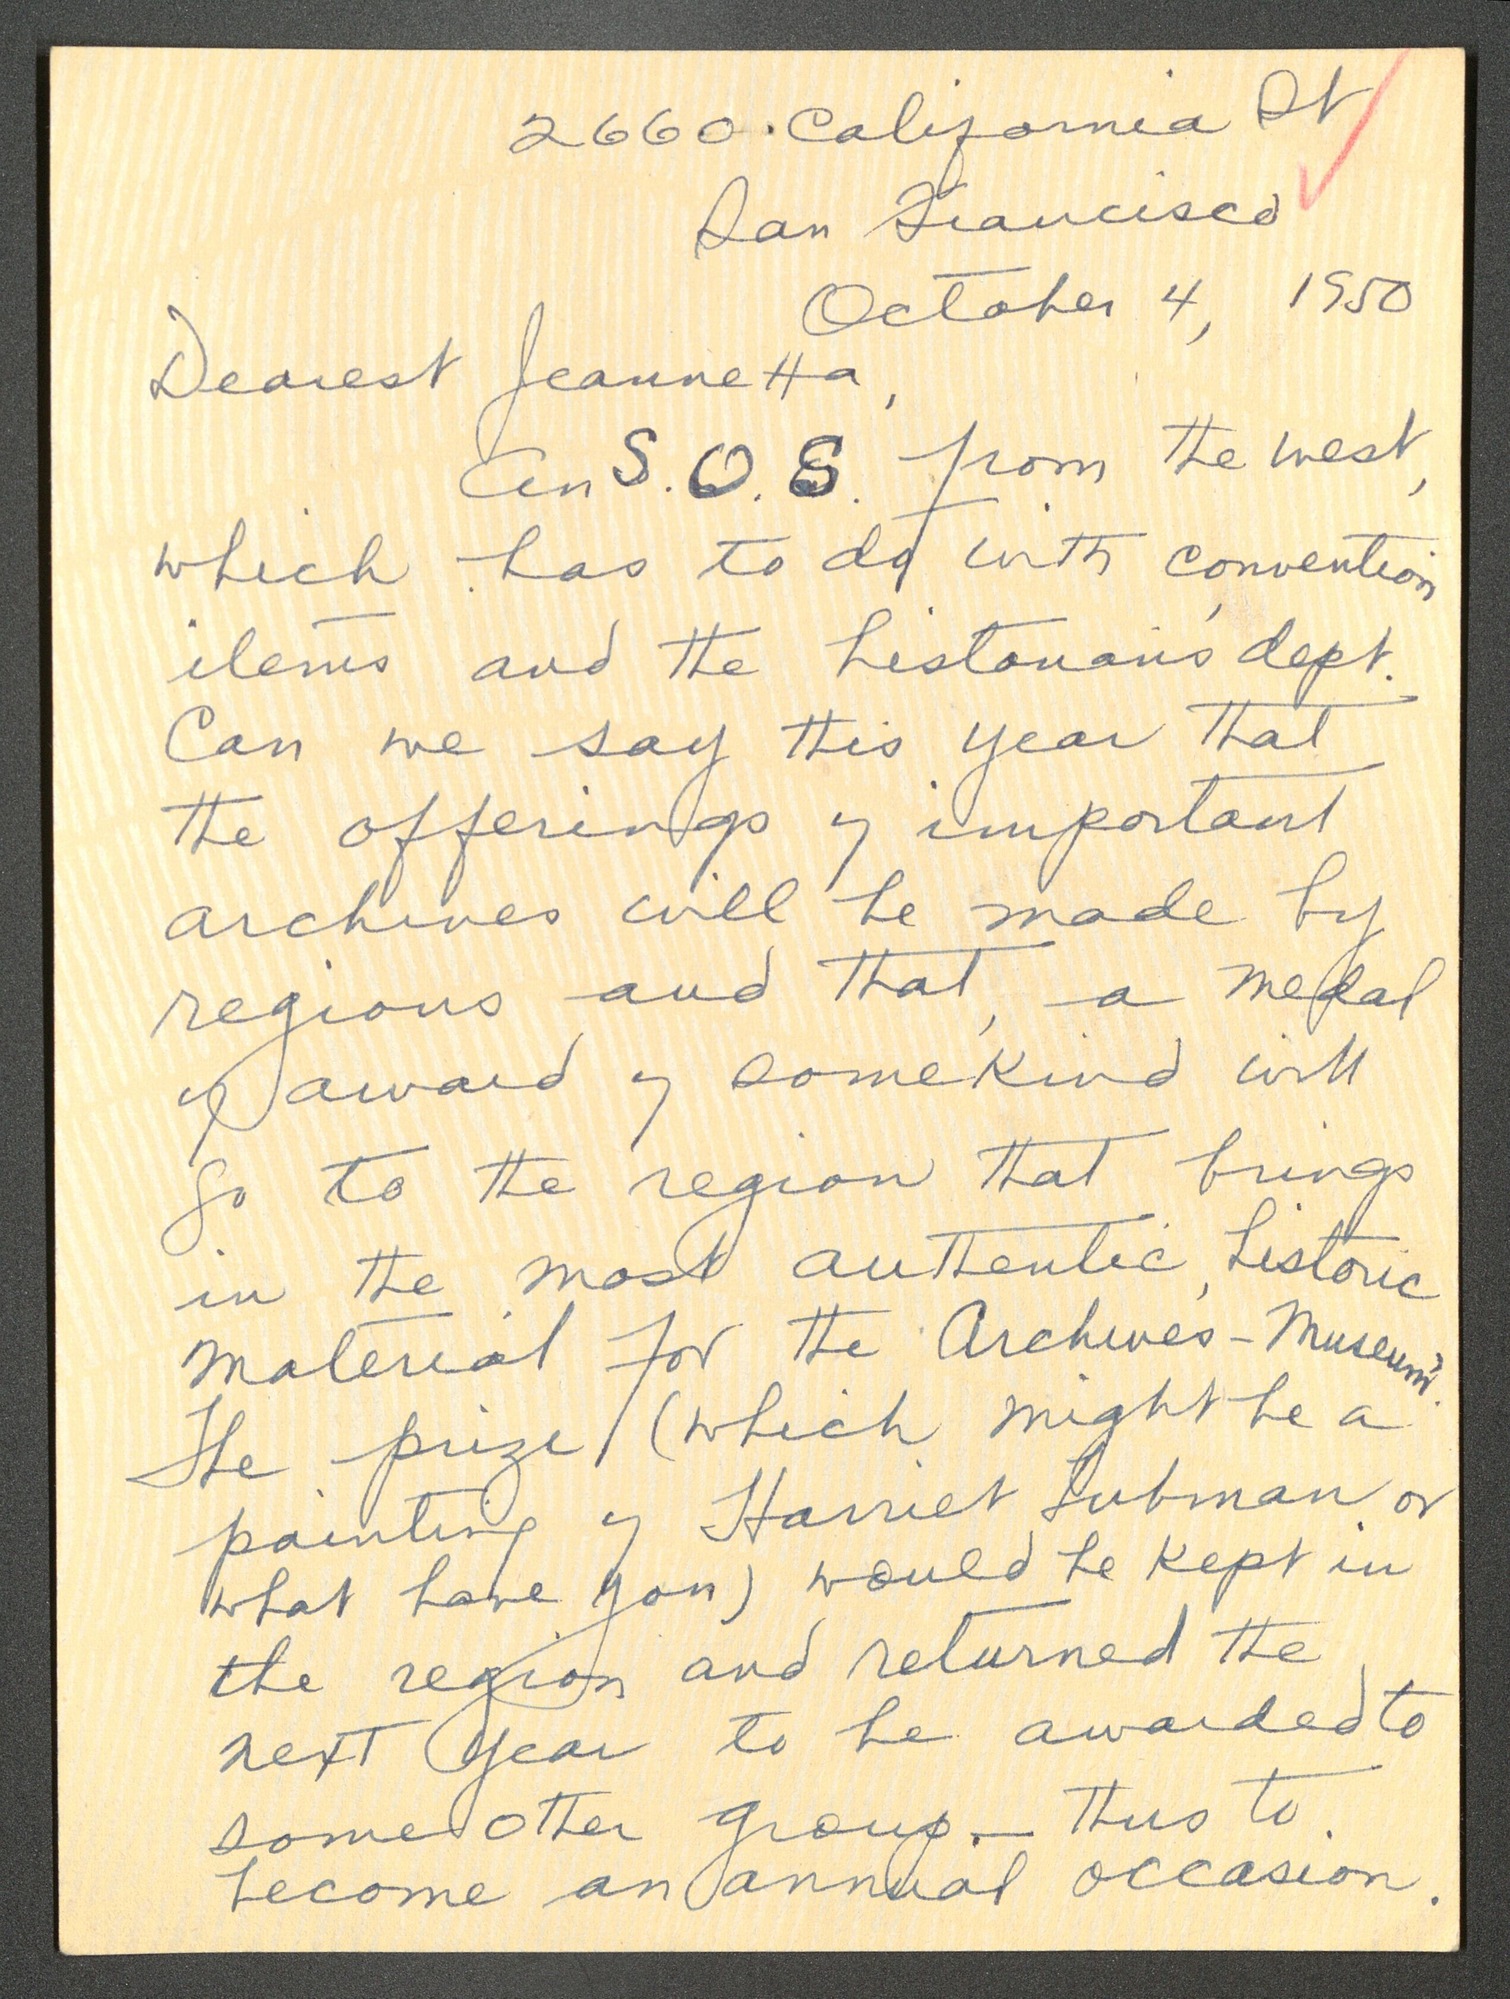 2660 · California St
San Francisco
October 4, 1950
Dearest Jeannetta,
An S.O.S. from the west,
which has to do with convention
items and the historian's dept.
Can we say this year that
the offerings of important
archives will be made by
regions and that, a medal
of award of some kind will
go to the region that brings
in the most authentic, historic
material for the Archives - Museum.
The prize (which might be a
painting of Harriet Tubman or
what have you) would be kept in
the region and returned the
next year to be awarded to
some other group — thus to
become an annual occasion.